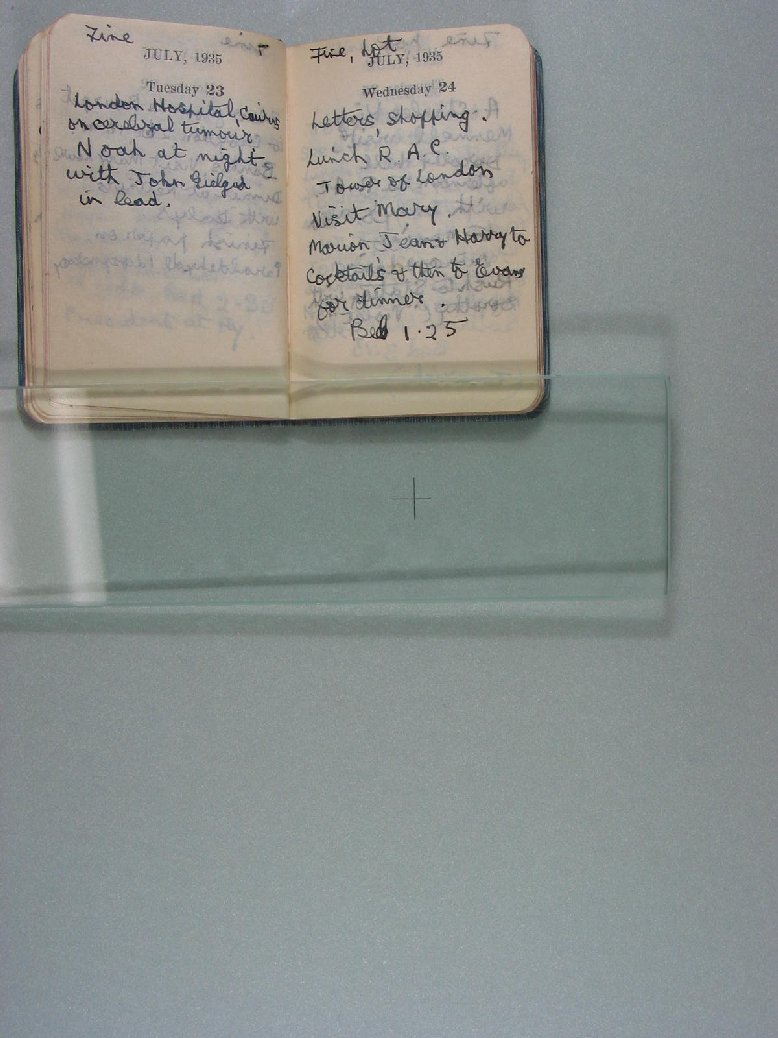 Fine
JULY, 1935
Tuesday 23
London Hospital, Cairns
on cerebral tumour
Noah at night
with John Gielgud
in lead.
Fine, hot
JULY, 1935
Wednesday 24
Letters, shopping.
Lunch R.A.C.
Tower of London
Visit Mary.
Marion Jean & Harry to
Cocktails & then to Evans
for dinner.
Bed 1.25